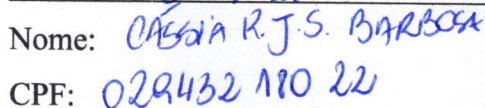 Nome: CÁSSIA R. J. S. BARBOSA
CPF: 029432 180 22